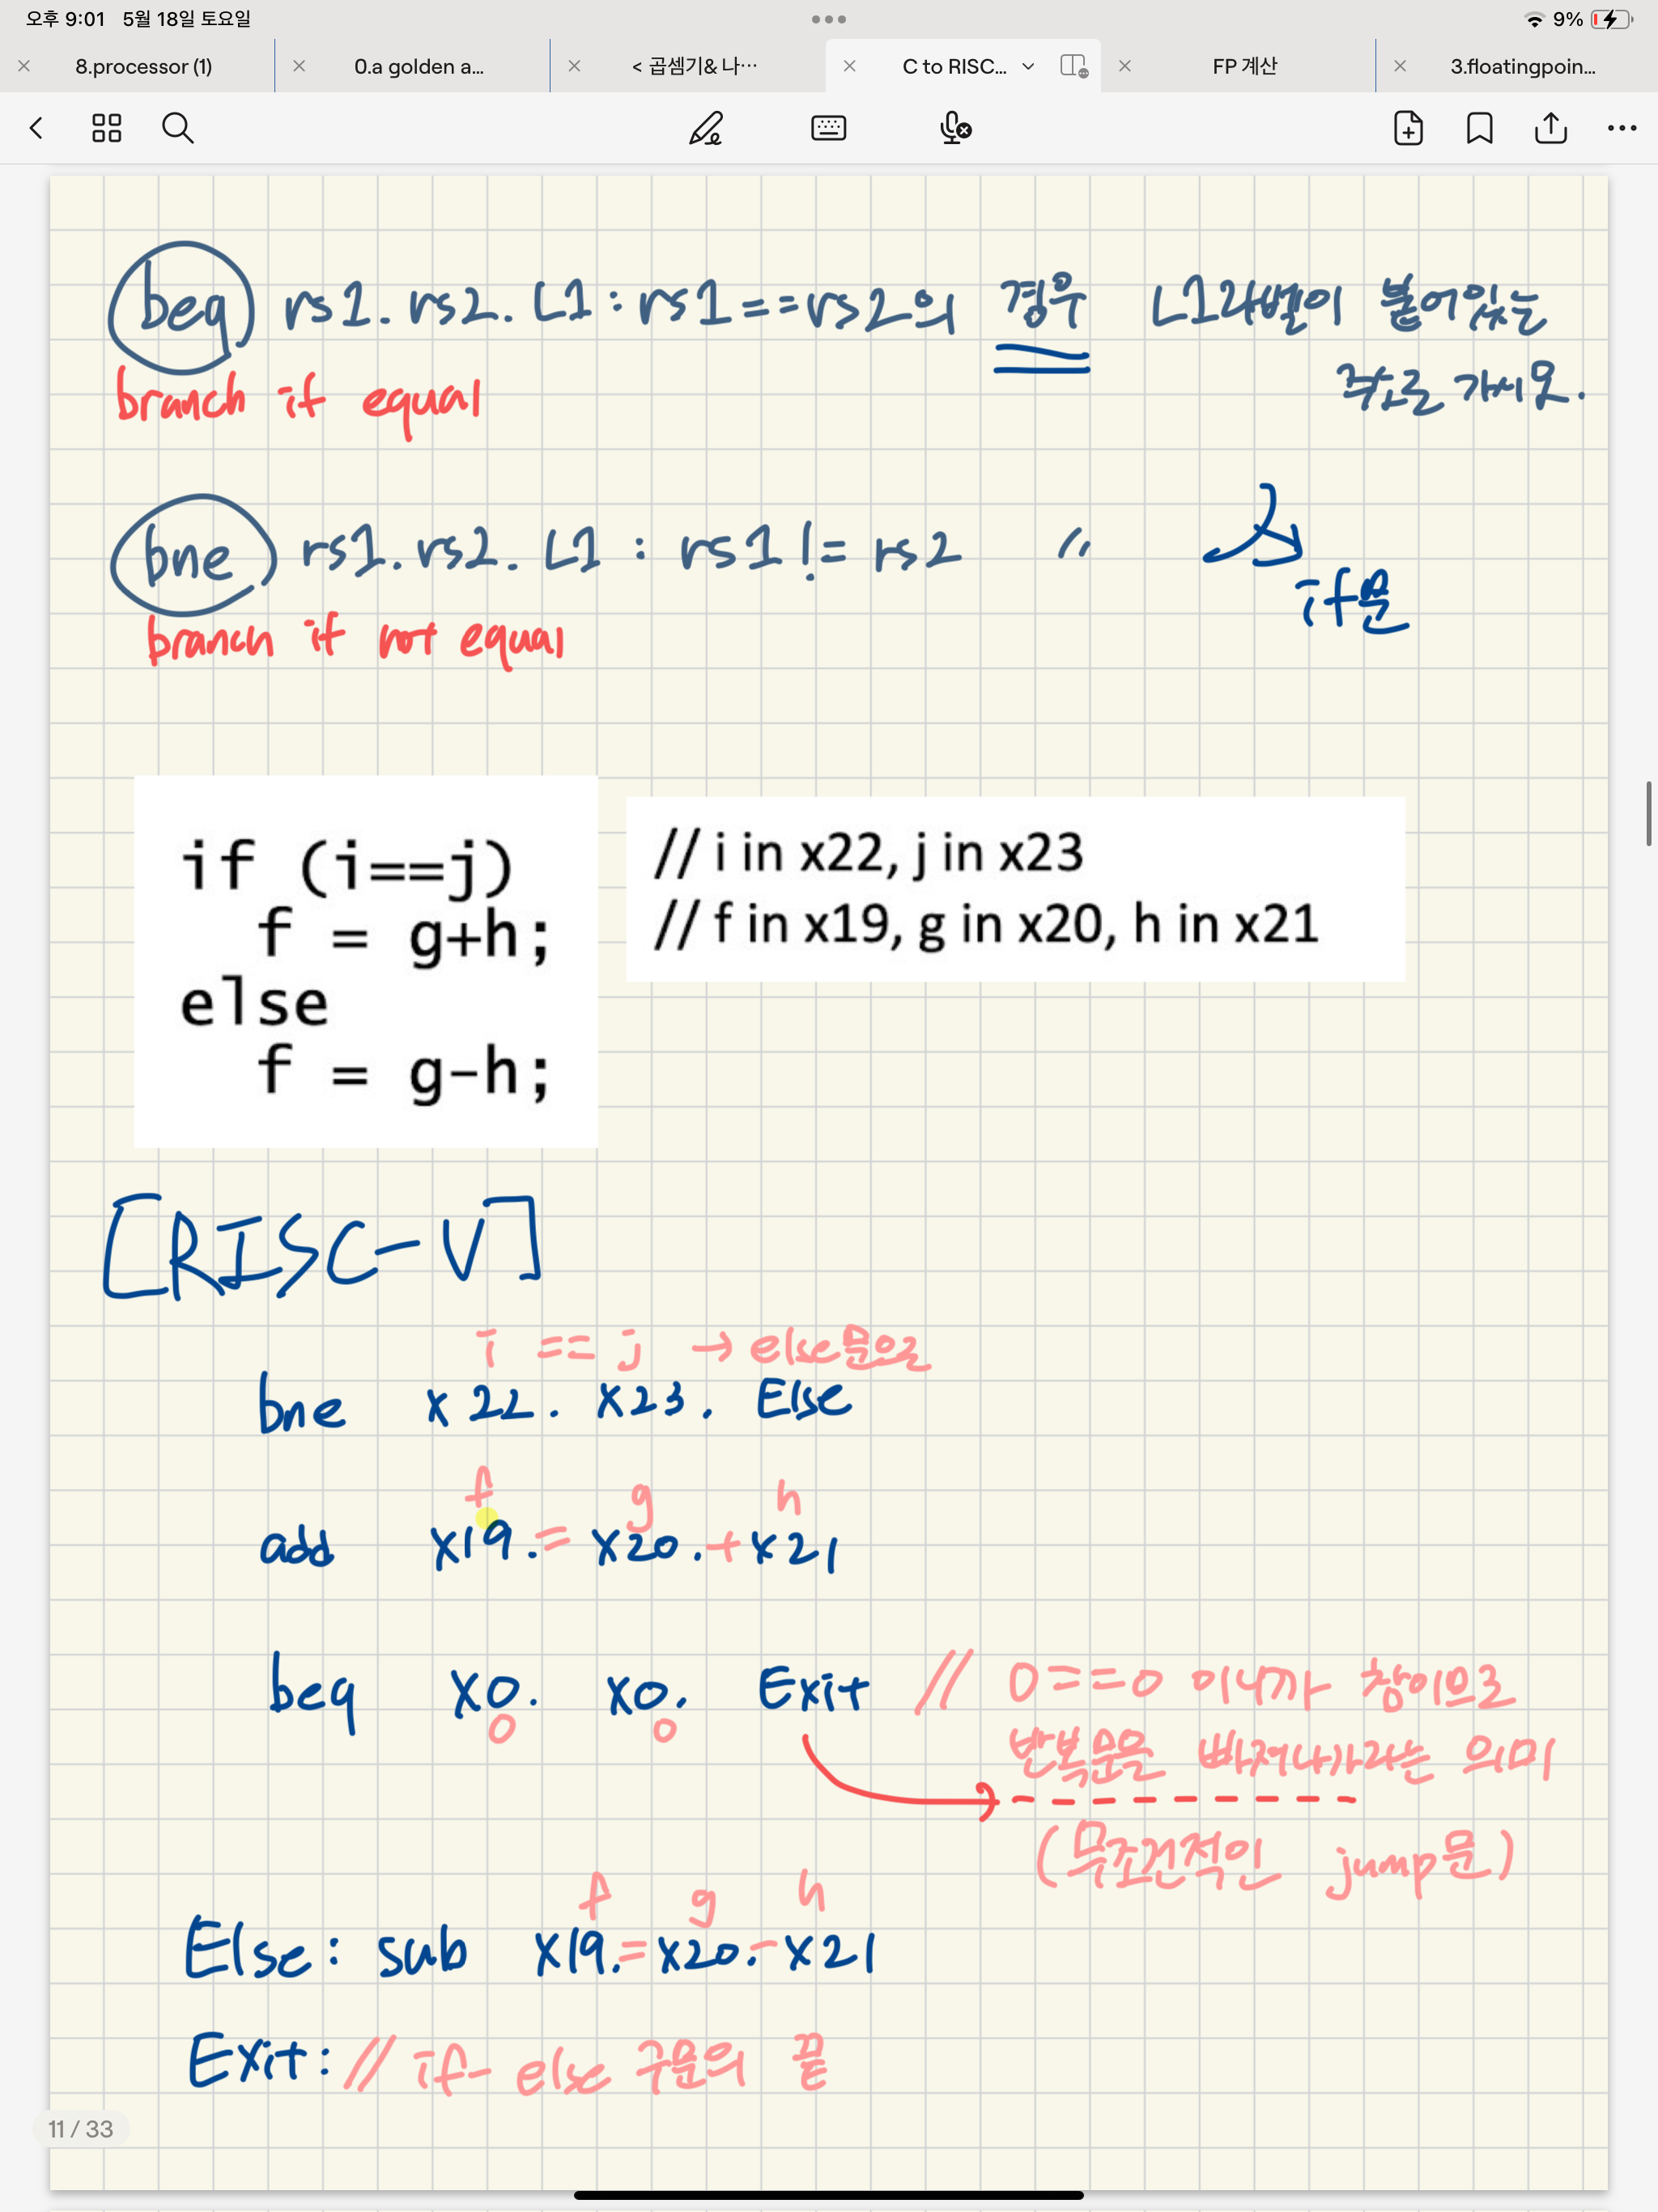 오후 9:01 5월 18일 토요일
9%
8.processor (1)
0.a golden a...
< 곱셈기& 나...
C to RISC...
FP 계산
3.floatingpoin...
beq rs1. rs2. L1 : rs1 == rs2의 경우 L1라벨이 붙어있는
주소로 가시오.
branch if equal
bne rs1. rs2. L1 : rs1 != rs2 〃
if문
branch if not equal
if (i==j)
f = g+h;
else
f = g-h;
// i in x22, j in x23
// f in x19, g in x20, h in x21
[RISC-V]
i == j → else문으로
bne x22. x23. Else
f g h
add x19. = x20. + x21
beq x0. x0. Exit // 0==0 이니까 참이므로
0 0
반복문을 빠져나가라는 의미
(무조건적인 jump문)
f g h
Else: sub x19. = x20. - x21
Exit: // if-else 구문의 끝
11 / 33